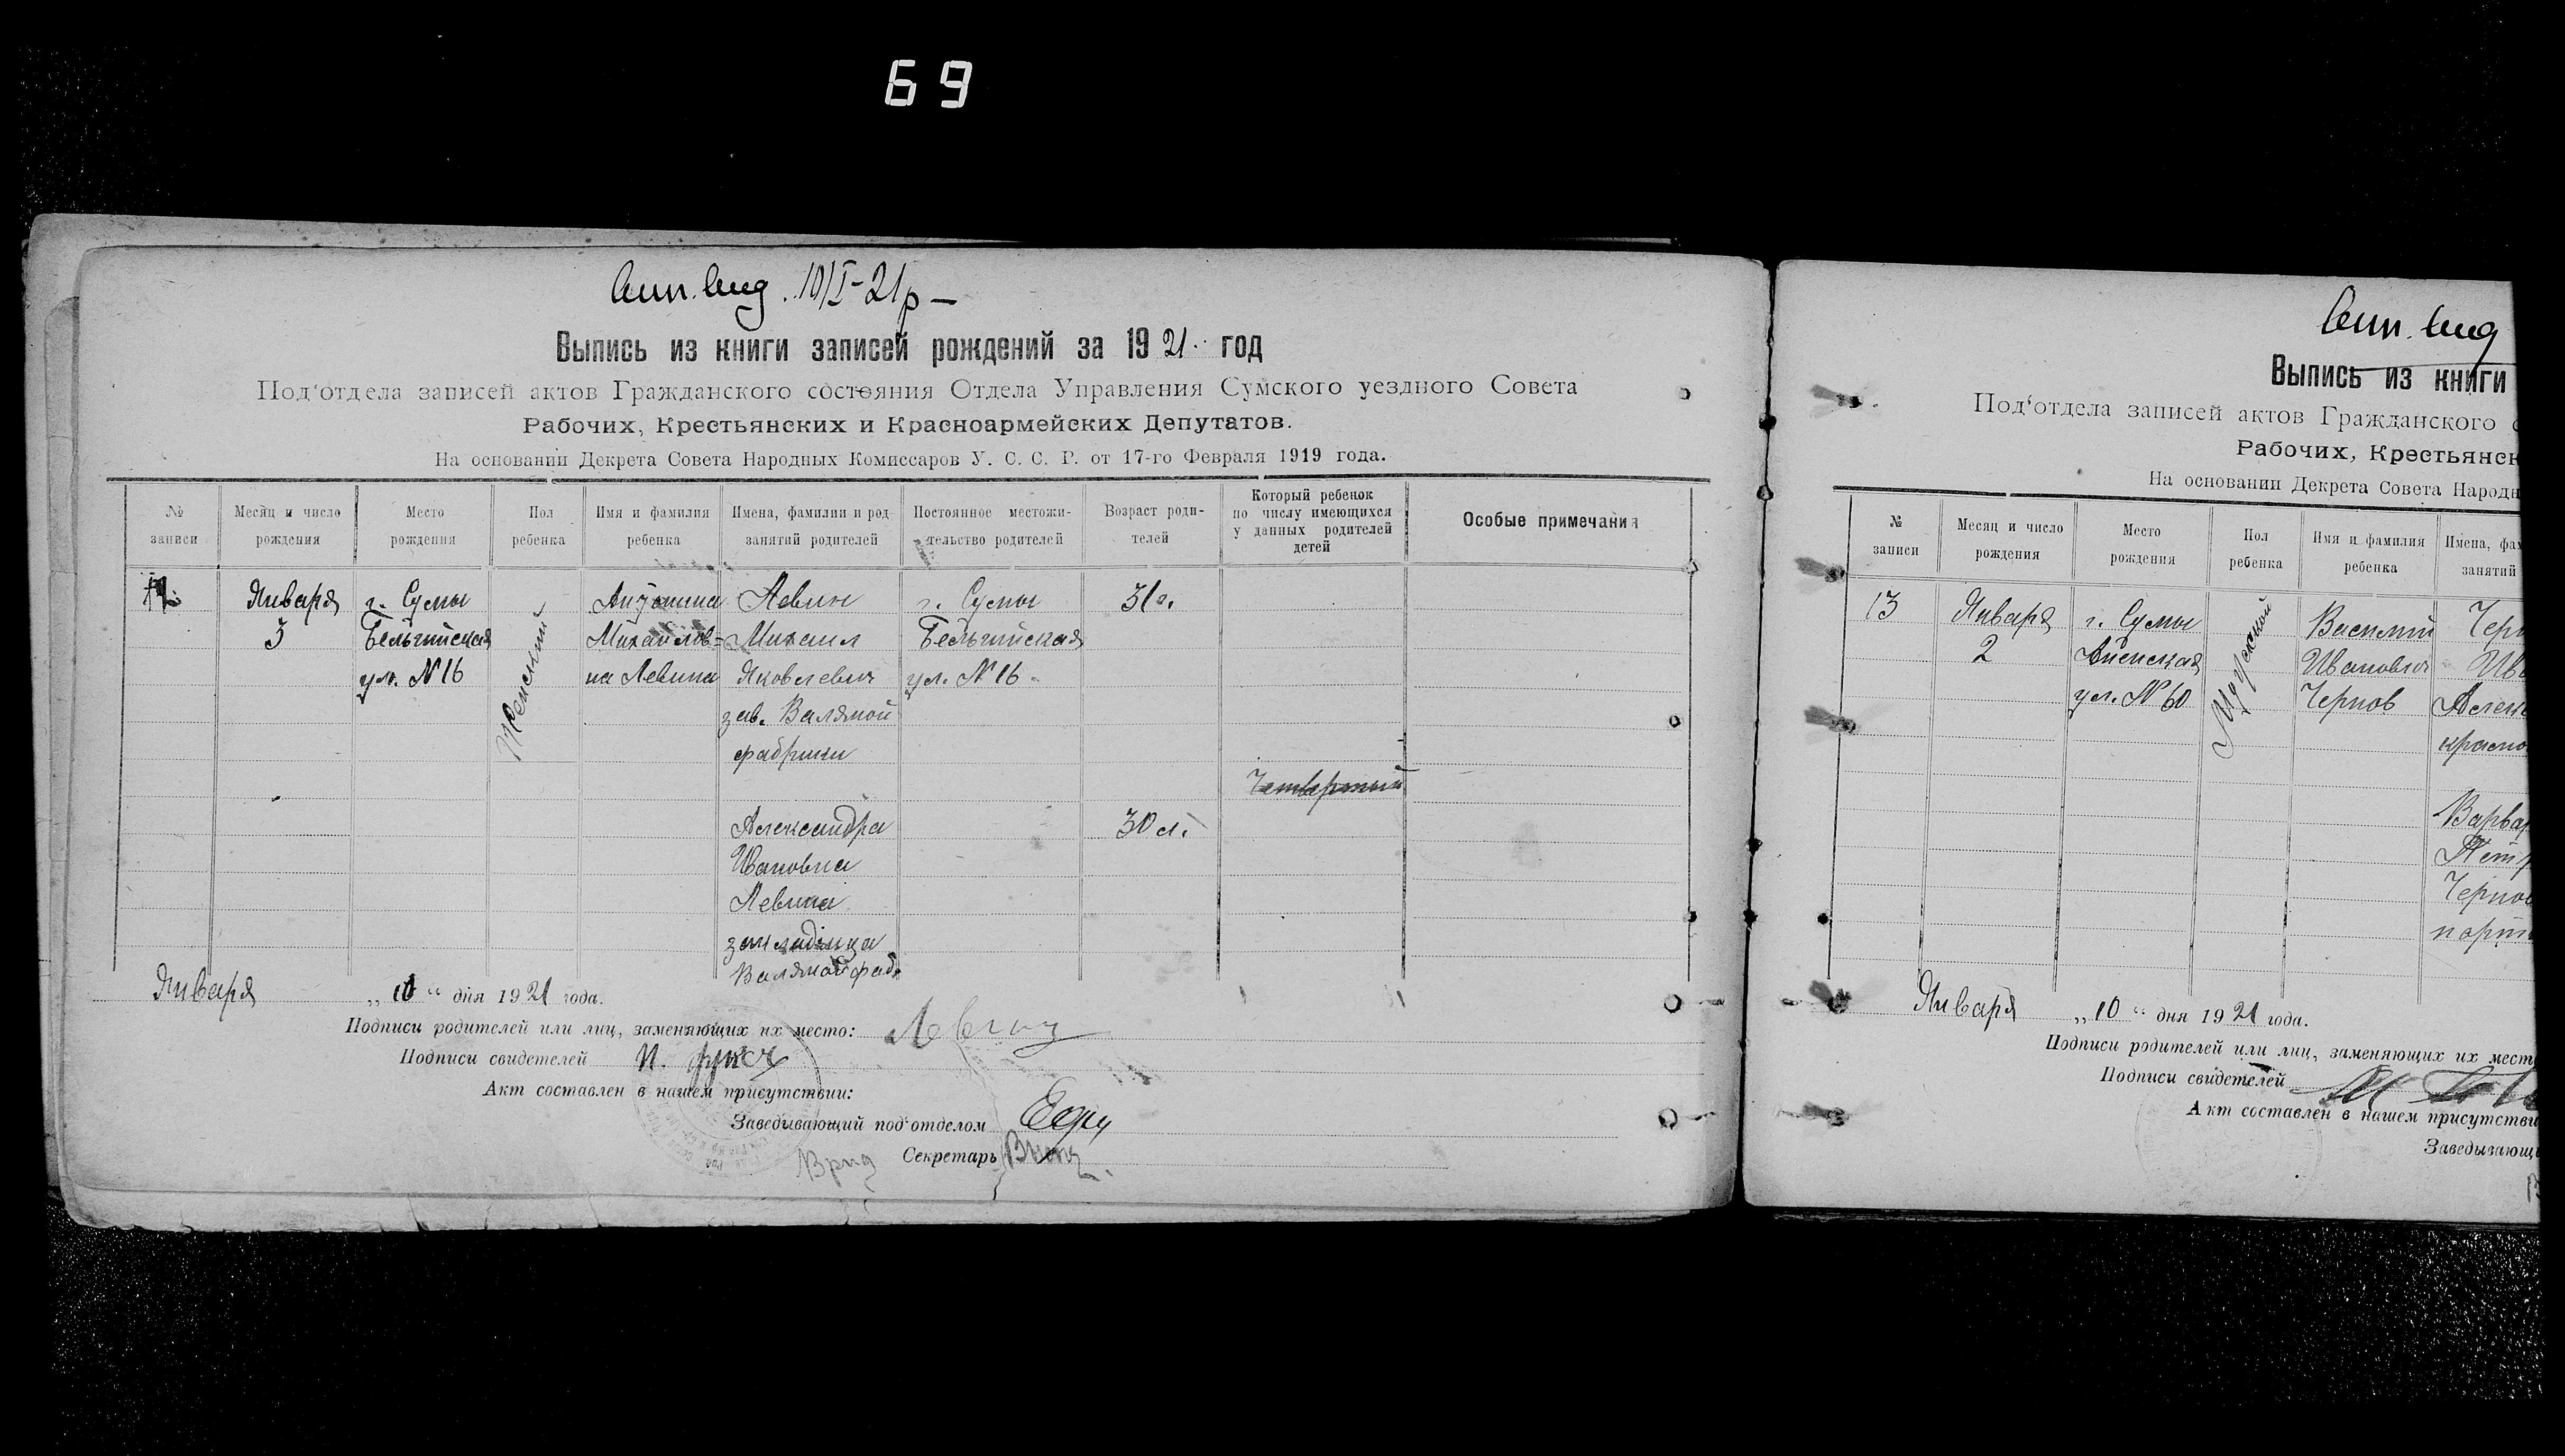 69
10/I-21р
Выпись из книги записей рождений за 1921 год
Под'отдела записей актов Гражданского состояния Отдела Управления Сумского уездного Совета
Рабочих, Крестьянских и Красноармейских Депутатов.
На основании Декрета Совета Народных Комиссаров У. С. С. Р. от 17-го Февраля 1919 года.
№ записи
Месяц и число рождения
Место рождения
Пол ребенка
Имя и фамилия ребенка
Имена, фамилии и род занятий родителей
Постоянное местожительство родителей
Возраст родителей
Который ребенок по числу имеющихся у данных родителей детей
Особые примечания
12
Января
3
г. Сумы
Бельгийская
ул. № 16
Женский
Антонина
Михайлов-
на Левина
Левин
Михаил
Яковлевич
зав. Валяной
фабрики
Александра
Ивановна
Левина
Валяной фаб.
г. Сумы
Бельгийская
ул. № 16
31 г.
30 л.
Четвертый
Января „10“ дня 1921 года.
Подписи родителей или лиц, заменяющих их место: Левин
Подписи свидетелей
Акт составлен в нашем присутствии:
Заведывающий под'отделом
Врид Секретарь
Выпись из книги
Под'отдела записей актов Гражданского
Рабочих, Крестьянск
На основании Декрета Совета Народн
№ записи
Месяц и число рождения
Место рождения
Пол ребенка
Имя и фамилия ребенка
Имена, фам
занятий
13
Января
2
г. Сумы
ул. № 60
Мужской
Василий
Иванович
Чернов
Черн
Ив
Алекс
красно
Варвар
Петр
Чернов
порт
Января „10“ дня 1921 года.
Подписи родителей или лиц, заменяющих их мест
Подписи свидетелей
Акт составлен в нашем присутстви
Заведывающи